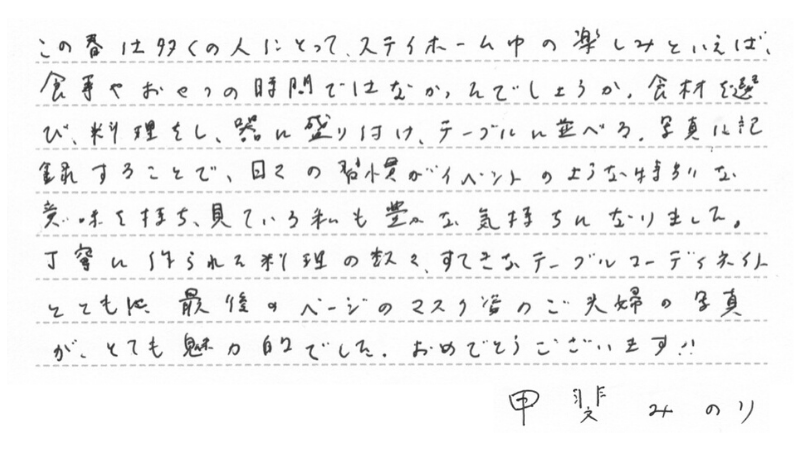 この春は多くの人にとって、ステイホーム中の楽しみといえば、
食事やおやつの時間ではなかったでしょうか。食材を選
び、料理をし、器に盛り付け、テーブルに並べる。写真に記
録することで、日々の習慣がイベントのような特別な
意味を持ち、見ている私も豊かな気持ちになりました。
丁寧に作られた料理の数々、すてきなテーブルコーディネイト
とともに、最後のページのマスク姿のご夫婦の写真
が、とても魅力的でした。おめでとうございます!!
甲斐みのり